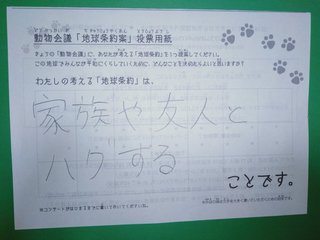 動物会議「地球条約案」投票用紙
きょうの「動物会議」に、あなたが考える「地球条約」を1つ提案してください。
この地球でみんなが平和にくらしていくために、どんなことを決めたらよいと思いますか?
わたしの考える「地球条約」は、
家族や友人と
ハグする
ことです。